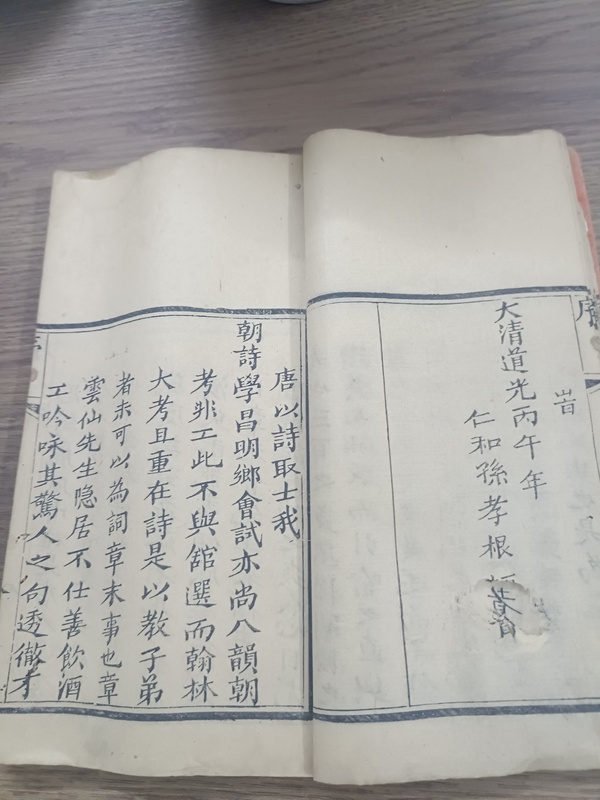 序
旹
大清道光丙午年
仁和孫孝根
唐以詩取士我
朝詩學昌明鄉會試亦尚八韻朝
考非工此不與舘選而翰林
大考且重在詩是以教子弟
者未可以為詞章末事也章
雲仙先生隐居不仕善飲酒
工吟咏其驚人之句透徹才